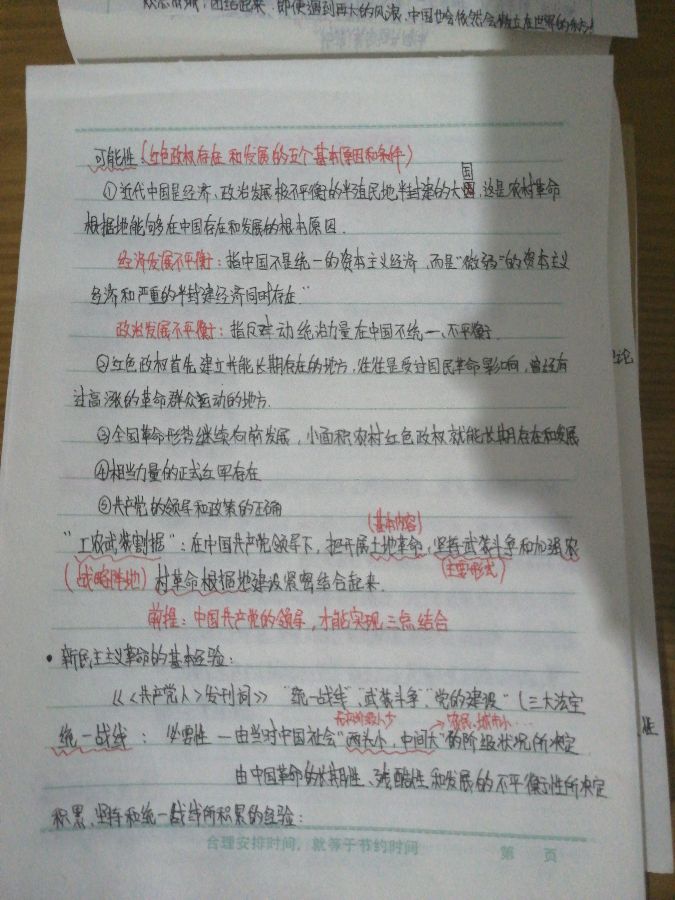 众志成城，团结起来，即使遇到再大的风浪，中国也会依然会屹立在世界的
可能性（红色政权存在和发展的五个基本原因和条件）
国
①近代中国是经济、政治发展极不平衡的半殖民地半封建的大国，这是农村革命
根据地能够在中国存在和发展的根本原因．
经济发展不平衡：指中国不是统一的资本主义经济，而是"微弱"的资本主义
经济和严重的半封建经济同时存在"
政治发展不平衡：指反动统治力量在中国不统一、不平衡．
②红色政权首先建立并能长期存在的地方，往往是受过国民革命影响，曾经有
过高涨的革命群众运动的地方．
③全国革命形势继续向前发展，小面积农村红色政权就能长期存在和发展
④相当力量的正式红军存在
⑤共产党的领导和政策的正确
（基本内容）
"工农武装割据"：在中国共产党领导下，把开展土地革命，坚持武装斗争和加强农
（战略阵地）村革命根据地建设紧密结合起来．（主要形式）
前提：中国共产党的领导，才能实现三点结合
•新民主主义革命的基本经验：
《〈共产党人〉发刊词》"统一战线"、"武装斗争"、"党的建设"（三大法宝
无产阶级人少 → 农民、城市小…
统一战线：必要性—由当时中国社会"两头小，中间大"的阶级状况所决定
由中国革命的长期性、残酷性和发展的不平衡性所决定
积累、坚持和统一战线所积累的经验：
合理安排时间，就等于节约时间 第 页
论